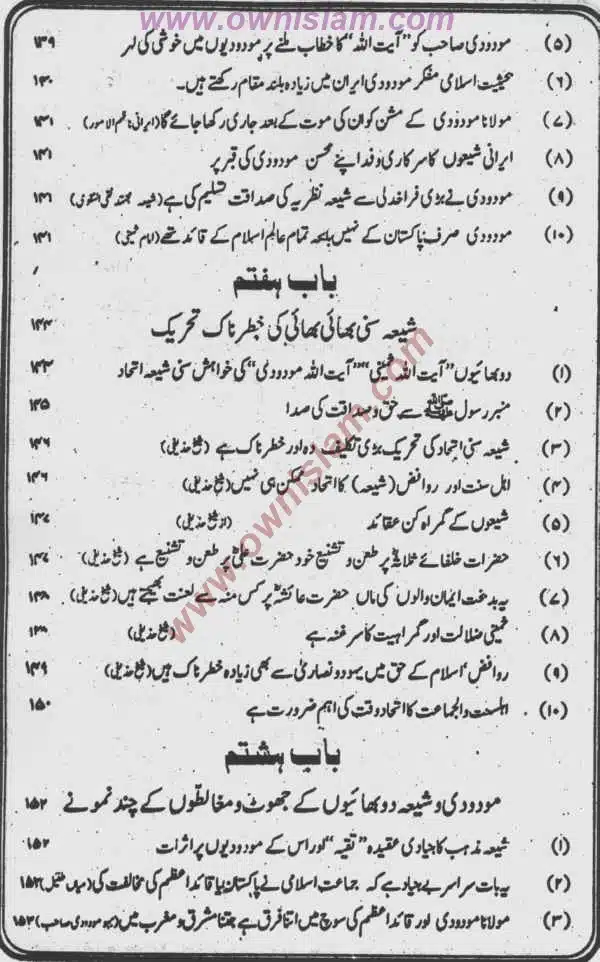 www.ownislam.com
(۵) مودودی صاحب کو ”آیت اللہ“ کا خطاب ملنے پر مودودیوں میں خوشی کی لہر ۱۳۹
(۶) بحیثیت اسلامی مفکر مودودی ایران میں زیادہ بلند مقام رکھتے ہیں۔ ۱۴۰
(۷) مولانا مودودی کے مشن کو ان کی موت کے بعد جاری رکھا جائے گا (ایرانی: الامور) ۱۴۱
(۸) ایرانی شیعوں کا سرکاری وفد اپنے محسن مودودی کی قبر پر ۱۴۱
(۹) مودودی نے بڑی فراخدلی سے شیعہ نظریہ کی صداقت تسلیم کی ہے (شیعہ مجتہد نقی النقوی) ۱۴۱
(۱۰) مودودی صرف پاکستان کے نہیں بلکہ تمام عالم اسلام کے قائد تھے (امام خمینی) ۱۴۱
باب ہفتم
شیعہ سنی بھائی بھائی کی خطرناک تحریک ۱۴۳
(۱) دو بھائیوں ”آیت اللہ خمینی“ ”آیت اللہ مودودی“ کی خواہش سنی شیعہ اتحاد ۱۴۳
(۲) منبر رسول ﷺ سے حق و صداقت کی صدا ۱۴۵
(۳) شیعہ سنی اتحاد کی تحریک بڑی تکلیف دہ اور خطرناک ہے (شیخ حذیفی) ۱۴۶
(۴) اہل سنت اور روافض (شیعہ) کا اتحاد ممکن ہی نہیں (شیخ حذیفی) ۱۴۶
(۵) شیعوں کے گمراہ کن عقائد (از شیخ حذیفی) ۱۴۷
(۶) حضرات خلفائے ثلاثہؓ پر طعن و تشنیع خود حضرت علیؓ پر طعن و تشنیع ہے (شیخ حذیفی) ۱۴۷
(۷) یہ بدبخت ایمان والوں کی ماں حضرت عائشہؓ پر کس منہ سے لعنت بھیجتے ہیں (شیخ حذیفی) ۱۴۸
(۸) خمینی ضلالت اور گمراہیت کا سرغنہ ہے (شیخ حذیفی)
(۹) روافض‘ اسلام کے حق میں یہود و نصاریٰ سے بھی زیادہ خطرناک ہیں (شیخ حذیفی) ۱۴۹
(۱۰) اہلسنت والجماعت کا اتحاد وقت کی اہم ضرورت ہے ۱۵۰
باب ہشتم
مودودی و شیعہ دو بھائیوں کے جھوٹ و مغالطوں کے چند نمونے ۱۵۲
(۱) شیعہ مذہب کا بنیادی عقیدہ ”تقیہ“ اور اس کے مودودیوں پر اثرات ۱۵۲
(۲) یہ بات سراسر بے بنیاد ہے کہ جماعت اسلامی نے پاکستان یا قائد اعظم کی مخالفت کی (میاں طفیل) ۱۵۲
(۳) مولانا مودودی اور قائد اعظم کی سوچ میں اتنا فرق ہے جتنا مشرق و مغرب میں (مودودی صاحب) ۱۵۳
www.ownislam.com